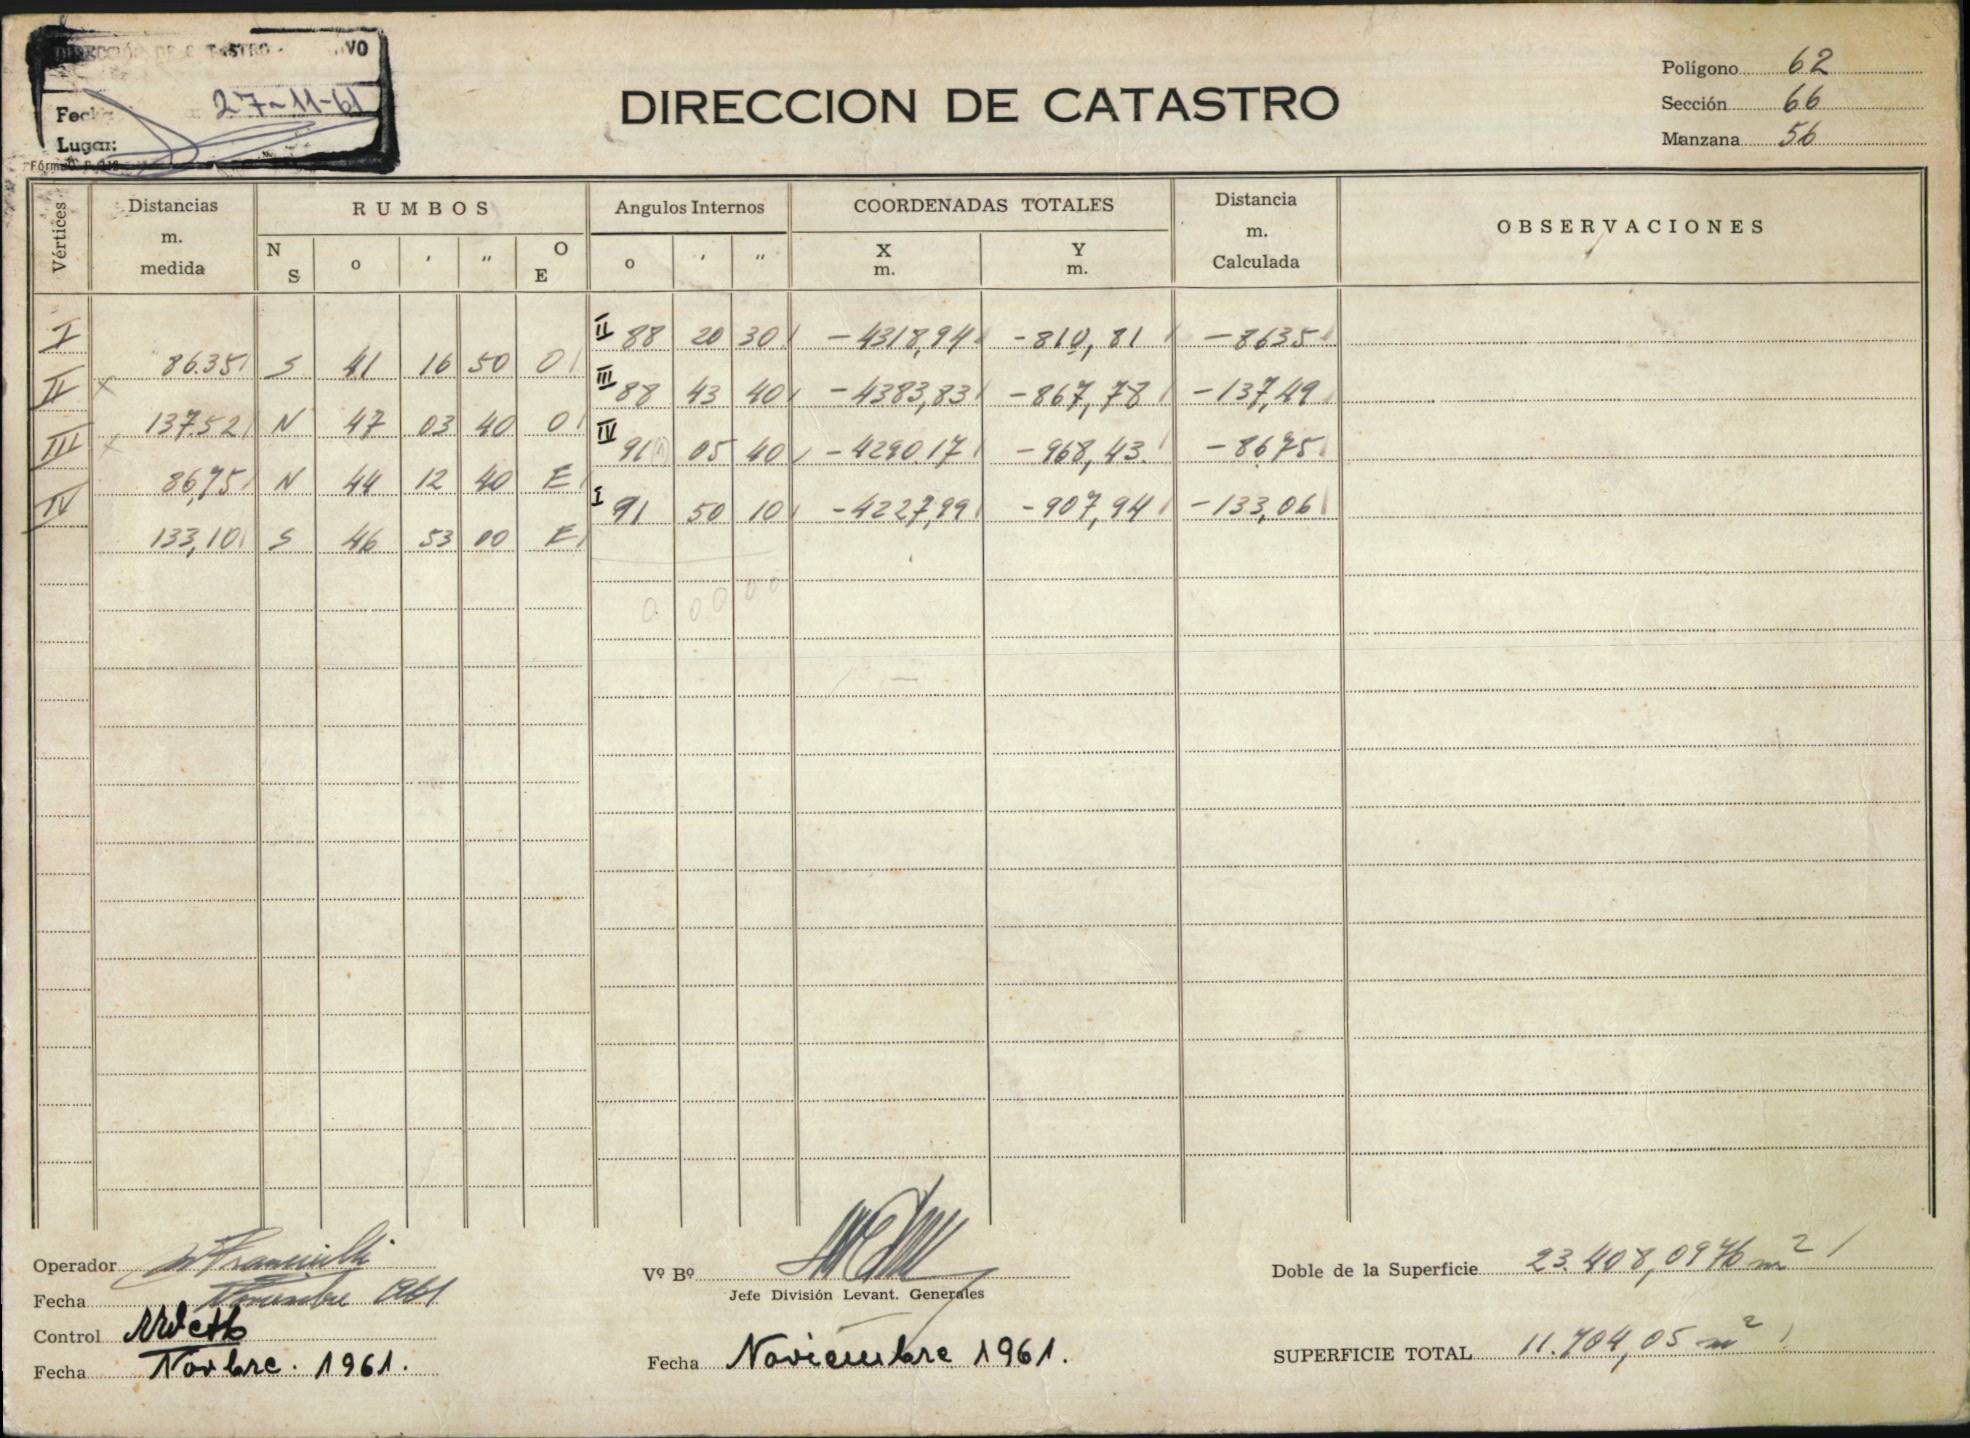 DIRECCIÓN DE CATASTRO
Fecha 27-11-61
Lugar:
DIRECCION DE CATASTRO
Polígono 62
Sección 66
Manzana 56
Vértices
Distancias m. medida
RUMBOS
N S o ' " O E
Angulos Internos
o ' "
COORDENADAS TOTALES
X m. Y m.
Distancia m. Calculada
OBSERVACIONES
I II 88 20 30 -4318,94 -810,81 -8635
86.35 S 41 16 50 O
II III 88 43 40 -4383,83 -867,78 -137,49
137.52 N 47 03 40 O
III IV 91 05 40 -4290.17 -968,43 -8675
86,75 N 44 12 40 E
IV I 91 50 10 -4227,99 -907,94 -133,06
133,10 S 46 53 00 E
0 00 00
Operador
Fecha Noviembre 1961
Control
Fecha Novbre. 1961.
Vº Bº
Jefe División Levant. Generales
Fecha Noviembre 1961.
Doble de la Superficie 23.408,0976 m²
SUPERFICIE TOTAL 11.704,05 m²